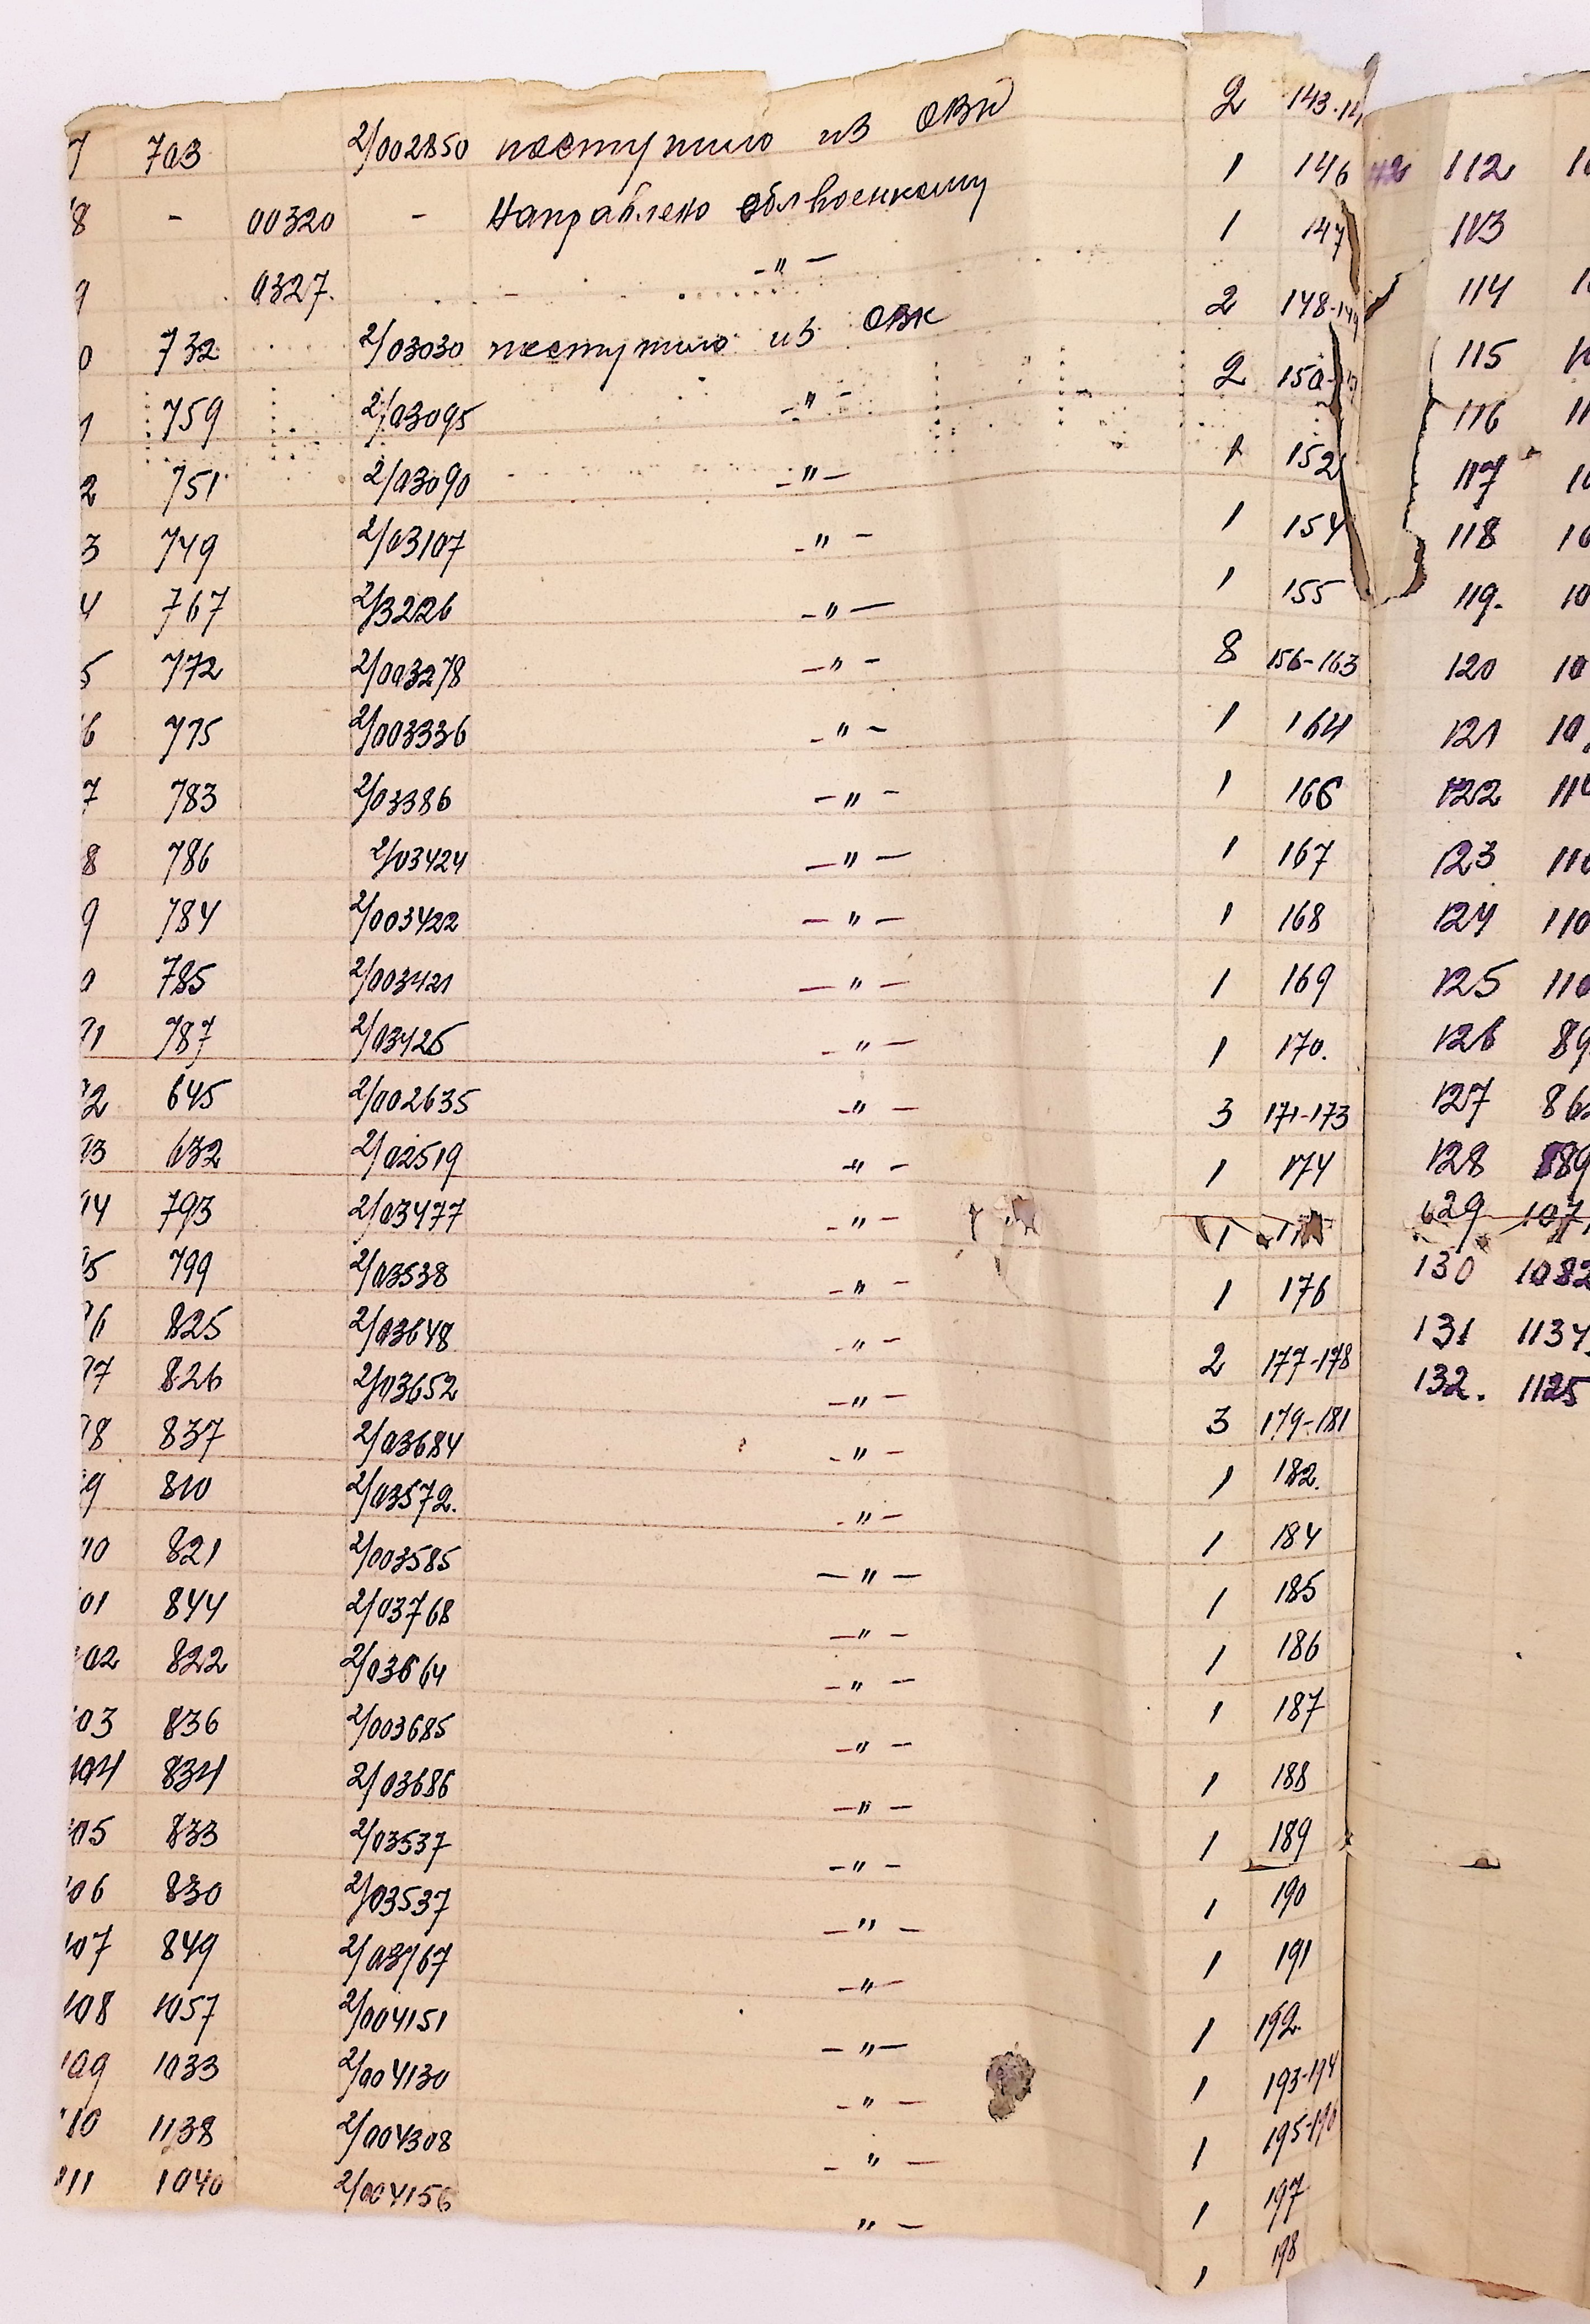 7 703 2/002850 поступило из ОВК 2 143-14
8 - 00320 - Направлено облвоенкому 1 146
9 0327. -"- 1 147
0 732 2/03030 поступило из ОВК 2 148-149
1 759 2/03095 -"- 2 150-151
2 751 2/03090 -"- 1 152
3 749 2/03107 -"- 1 154
4 767 2/3226 -"- 1 155
5 772 2/003278 -"- 8 156-163
6 775 2/003336 -"- 1 164
7 783 2/03386 -"- 1 166
8 786 2/03424 -"- 1 167
9 784 2/003422 -"- 1 168
0 785 2/003421 -"- 1 169
91 787 2/03425 -"- 1 170.
92 645 2/002635 -"- 3 171-173
93 632 2/02519 -"- 1 174
94 793 2/03477 -"- 1
95 799 2/03538 -"- 1 176
96 825 2/03648 -"- 2 177-178
97 826 2/03652 -"- 3 179-181
98 837 2/03684 -"- 1 182.
99 810 2/03572. -"- 1 184
00 821 2/003585 -"- 1 185
01 844 2/03768 -"- 1 186
102 822 2/03664 -"- 1 187
103 836 2/003685 -"- 1 188
104 834 2/03686 -"- 1 189
105 833 2/03537 -"- 1 190
106 830 2/03537 -"- 1 191
107 849 2/03767 -"- 1 192.
108 1057 2/004151 -"- 1 193-194
109 1033 2/004130 -"- 1 195-196
110 1138 2/004308 -"- 1 197
111 1040 2/004156 "- 1 198
112 10
113
114 10
115 10
116 11
117 10
118 10
119. 10
120 10
121 10
122 110
123 110
124 110
125 110
126 89
127 86
128 889
129 107
130 1082
131 1134
132. 1125